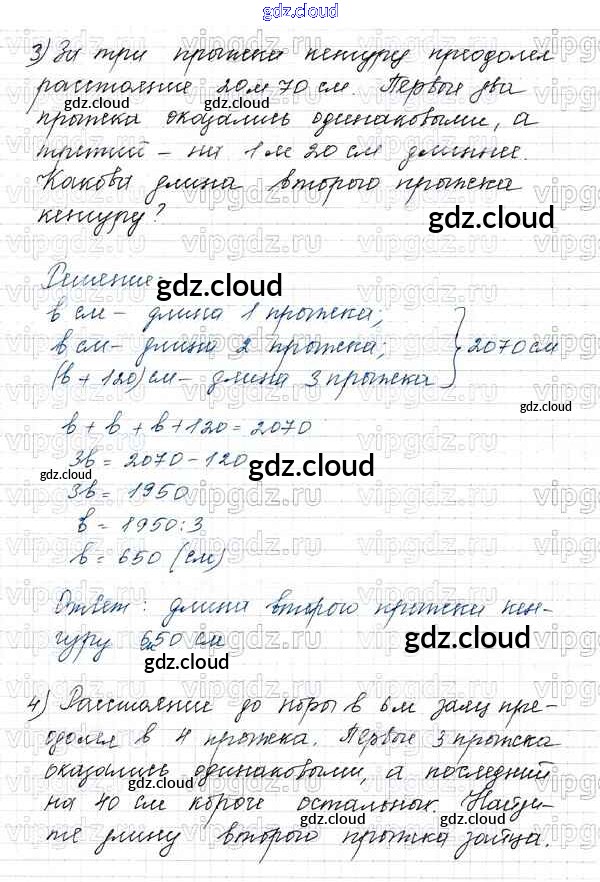 gdz.cloud
3) За три прыжка кенгуру преодолел
расстояние 20м 70 см. Первые два
прыжка оказались одинаковыми, а
третий – на 1м 20 см длиннее.
Какова длина второго прыжка
кенгуру?
Решение:
в см – длина 1 прыжка;
в см – длина 2 прыжка;
(в + 120) см – длина 3 прыжка } 2070 см
в + в + в + 120 = 2070
3в = 2070 - 120
3в = 1950
в = 1950 : 3
в = 650 (см)
Ответ: длина второго прыжка кен-
гуру 650 см
4) Расстояние до норы в 6м заяц пре-
одолел в 4 прыжка. Первые 3 прыжка
оказались одинаковыми, а последний
на 40 см короче остальных. Найди-
те длину второго прыжка зайца.